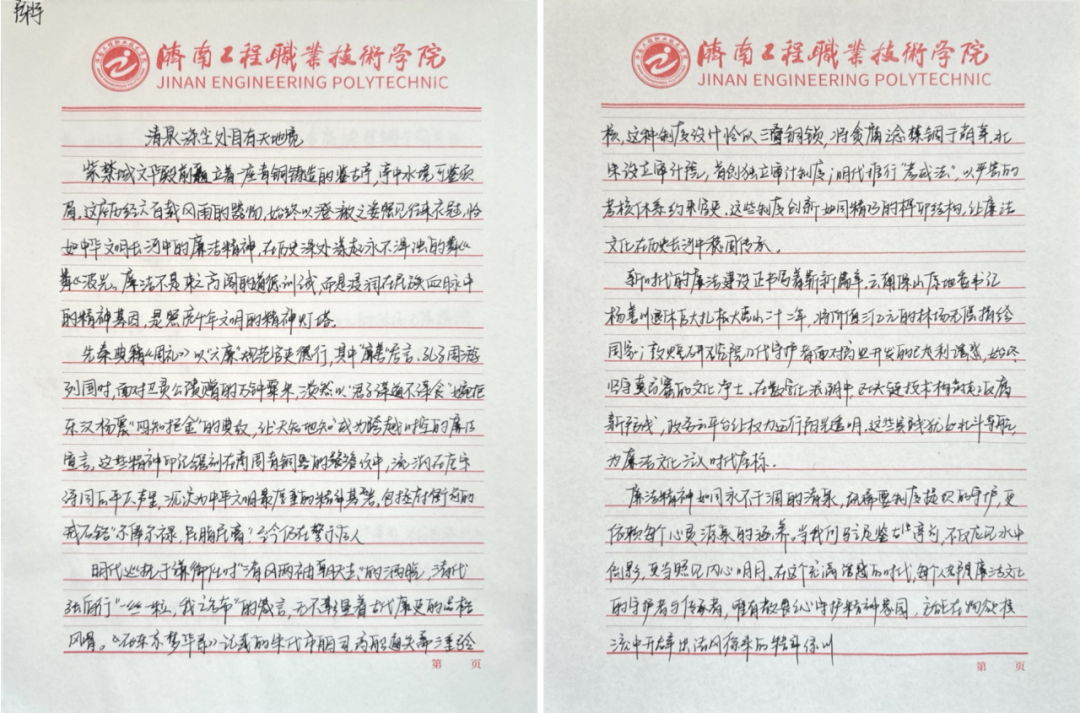 濟南工程職業技術学院
JINAN ENGINEERING POLYTECHNIC
清泉涤尘处自有天地境
紫禁城文华殿前矗立着一座青铜铸造的鉴古亭，亭中水境可鉴须
眉。这座历经六百载风雨的器物，始终以澄澈之姿照见往来衣冠，恰
如中华文明长河中的廉洁精神，在历史深处漾起永不浑浊的粼
粼波光。廉洁不是束之高阁的道德训诫，而是浸润在民族血脉中
的精神基因，是照亮千年文明的精神灯塔。
先秦典籍《周礼》以"六廉"规范官吏德行，其中"廉善"居首，孔子周游
列国时，面对卫灵公馈赠的万钟粟米，淡然以"君子谋道不谋食"婉拒
东汉杨震"四知拒金"的典故，让"天知地知"成为跨越时空的廉洁
宣言，这些精神印记镌刻在商周青铜器的铭文中，流淌在唐宋
诗词的平仄里，沉淀为中华文明最厚重的精神基石。包拯在衙前的
戒石铭"尔俸尔禄，民脂民膏"至今仍在警示后人
明代于谦卸任时"清风两袖朝天去"的洒脱，清代
张伯行"一丝一粒，我之名节"的箴言，无不彰显着古代廉吏的品格
风骨。《东京梦华录》记载的宋代
第 页
濟南工程職業技術学院
JINAN ENGINEERING POLYTECHNIC
核，这种制度设计恰似三重铜锁，将贪腐之念禁锢于萌芽。北
宋设立审计院，首创独立审计制度；明代推行"考成法"，以严密的
考核体系约束官吏。这些制度创新如同精巧的榫卯结构，让廉洁
文化在历史长河中稳固传承。
新时代的廉洁建设正书写着崭新篇章。云南保山原地委书记
杨善洲退休后扎根大亮山二十二年，将价值3亿元的林场无偿捐给
国家；敦煌研究院几代守护者面对商业开发的巨大利诱惑，始终
坚守莫高窟的文化净土。在数字化浪潮中，区块链技术构筑起反腐
新防线，政务云平台让权力运行阳光透明，这些实践犹如北斗导航，
为廉洁文化立时代坐标。
廉洁精神如同永不干涸的清泉，既需要制度提供的守护，更
依赖每个心灵清泉的涵养。当我们驻足鉴古亭前，不仅应见水中
倒影，更当照见内心明月。在这个充满诱惑的时代，每个人都是廉洁文化
的守护者与传承者，唯有敬畏之心守护精神家园，方能在物欲横
流中开辟出清风徐来的精神绿洲
第 页